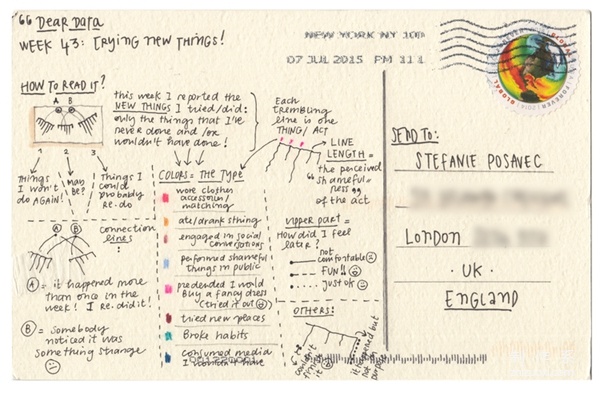 “ Dear Data
WEEK 43: TRYING NEW THINGS!
NEW YORK NY 100
07 JUL 2015 PM 11 L
FOREVER
GLOBAL
HOW TO READ IT?
A B
1 2 3
Things I won't do AGAIN!
May be?
Things I could probably re.do
this week I reported the
NEW THINGS I tried/did:
only the things that I've
never done and /or
wouldn't have done!
Each
trembling
line is one
THING/ ACT
LINE
LENGTH =
the perceived
“shameful-
ness”
of the act
COLORS = THE TYPE
wore clother
accessories/
matching
ate/drank sthing
engaged in social
conversations
performed shameful
things in public
predended I would
buy a fancy dress
(tried it out)
tried new places
Broke habits
consumed media
I wouldn't have
connection
lines
A B
A = it happened more
than once in the
week! I re.did it!
B = somebody
noticed it was
something strange
upper part =
HOW did I feel
later?
not
comfortable
FUN!!
just ok
OTHERS:
couldn't
it
it happened but
not on
purpose
SEND TO:
STEFANIE POSAVEC
LONDON
· UK ·
ENGLAND